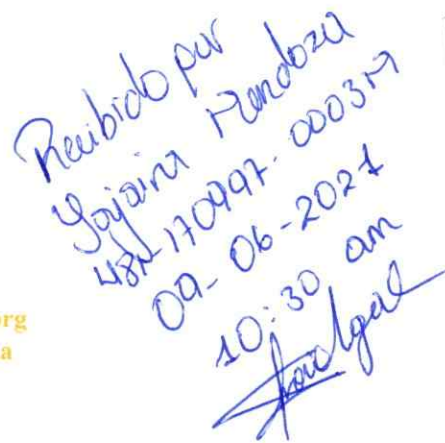 Recibido por
Yojaira Mendoza
481-170997-0003M
09-06-2021
10:30 am
rg
a